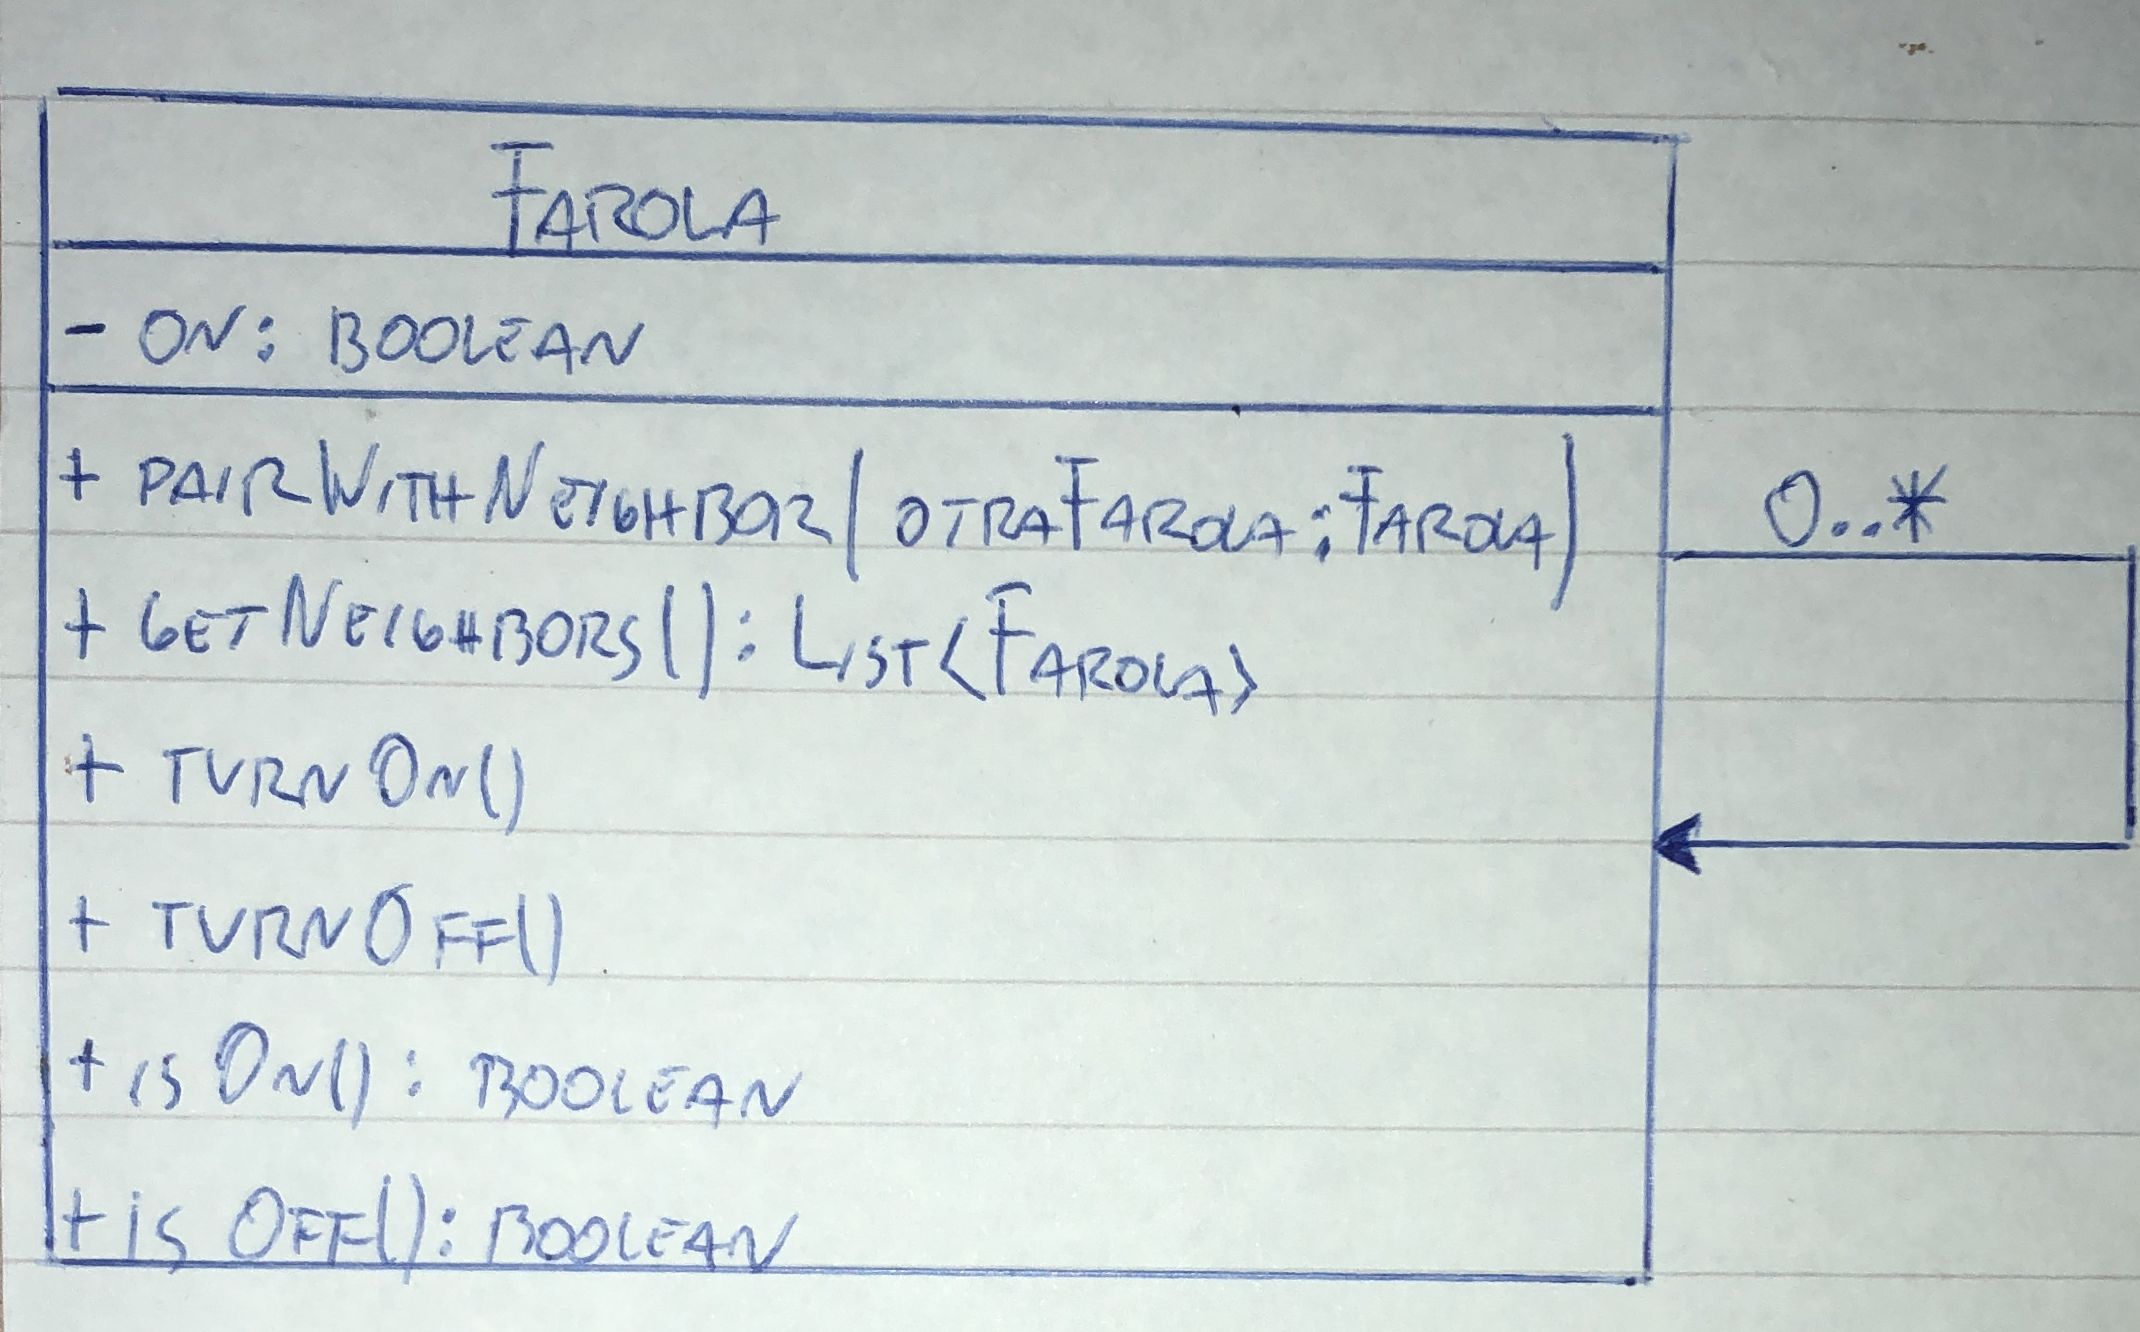 FAROLA
- ON: BOOLEAN
+ PAIRWITHNEIGHBOR(OTRAFAROLA:FAROLA)
0..*
+ GETNEIGHBORS(): LIST<FAROLA>
+ TURNON()
+ TURNOFF()
+ isON(): BOOLEAN
+ isOFF(): BOOLEAN